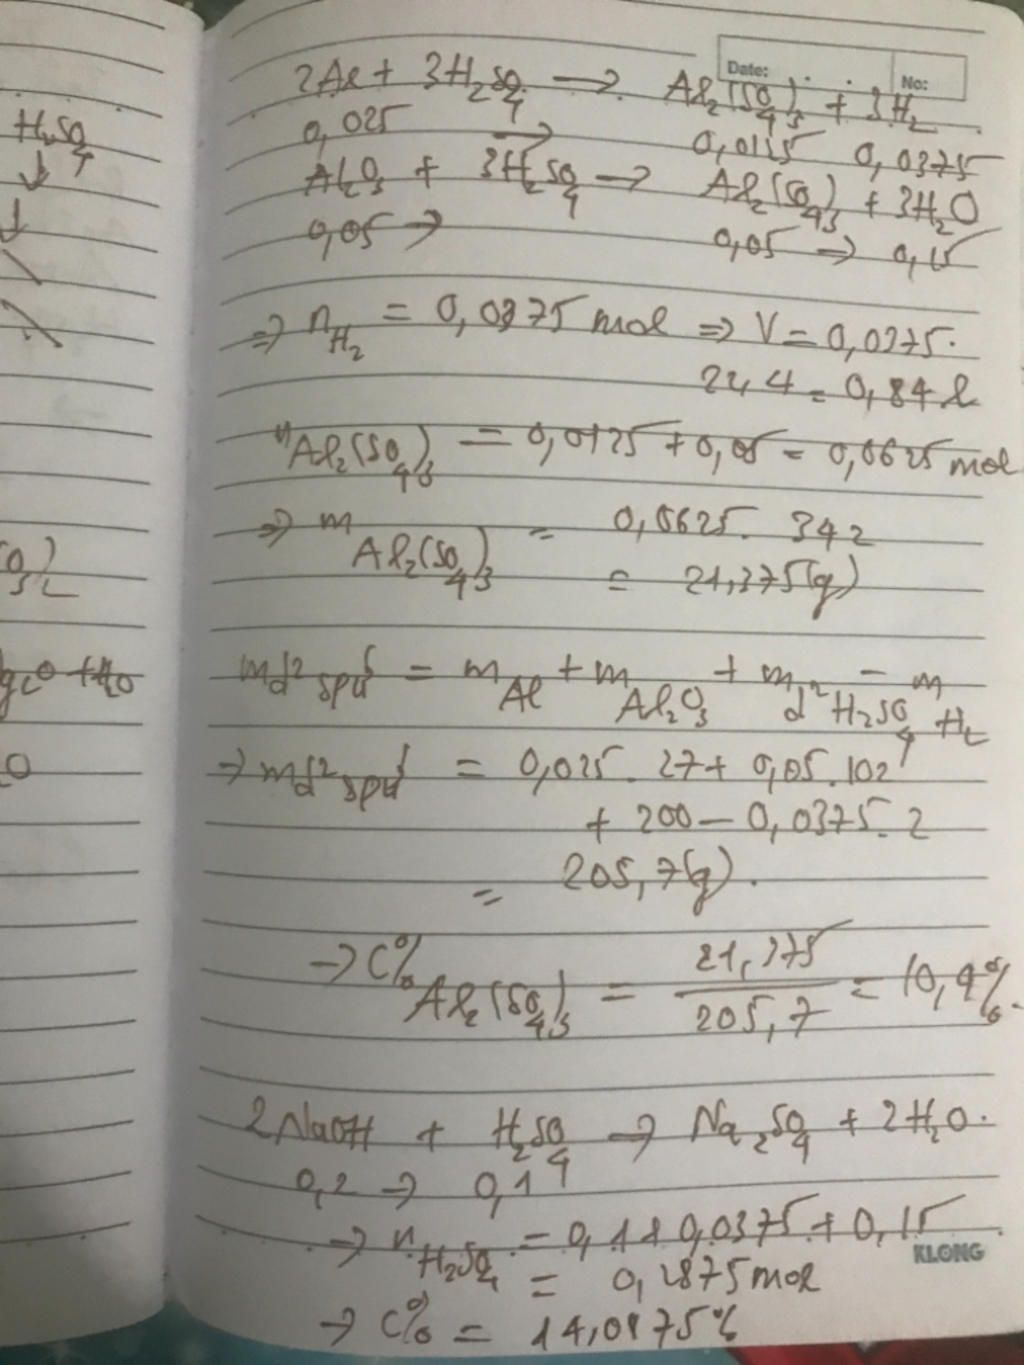 H₂SO₄
↓
↓
O₃)₂
gCO + H₂O
O
Date: No:
2Al + 3H₂SO₄ → Al₂(SO₄)₃ + 3H₂
0,025 → 0,0125 0,0375
Al₂O₃ + 3H₂SO₄ → Al₂(SO₄)₃ + 3H₂O
0,05 → 0,05 → 0,15
⇒ n H₂ = 0,0375 mol ⇒ V = 0,0375.
22,4 = 0,84 l
n Al₂(SO₄)₃ = 0,0125 + 0,05 = 0,0625 mol
⇒ m Al₂(SO₄)₃ = 0,0625. 342
= 21,375(g)
md² spứ = m Al + m Al₂O₃ + m d² H₂SO₄ - m H₂
→ md² spứ = 0,025. 27 + 0,05. 102
+ 200 - 0,0375. 2
= 205,7(g).
→ C% Al₂(SO₄)₃ = 21,375 / 205,7 = 10,4%.
2NaOH + H₂SO₄ → Na₂SO₄ + 2H₂O.
0,2 → 0,1
→ n H₂SO₄ = 0,1 + 0,0375 + 0,15
KLONG
= 0,2875 mol
→ C% = 14,0875%